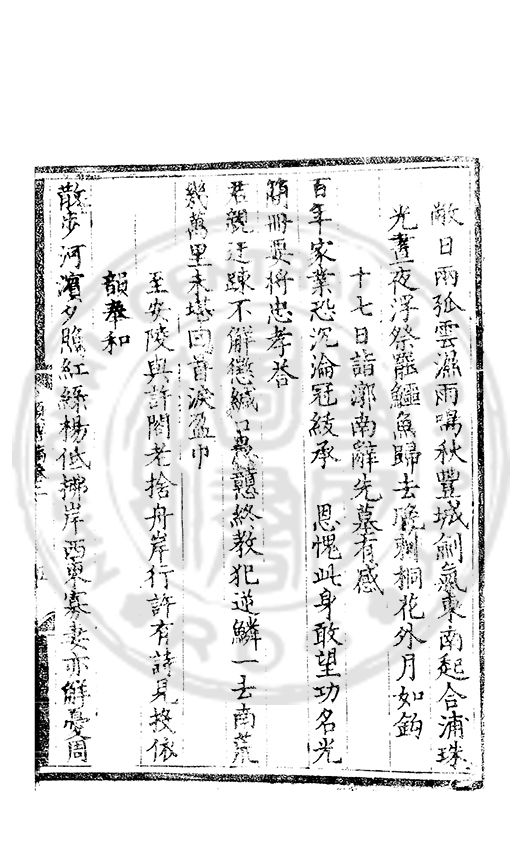 敞日兩孤雲濕雨鳴秋豐城劍氣東南起合浦珠
光晝夜浮祭罷鱷魚歸去晚刺桐花外月如鈎
十七日詣漷南辭先墓有感
百年家業恐沉淪冠綾承 恩愧此身敢望功名光
簡冊要將忠孝答
君親迂踈不解懲緘口愚戇終教犯逆鱗一去南荒
幾萬里未堪回首淚盈巾
至安陵與許閣老捨舟岸行許有詩見投依
韻奉和
散步河濱夕照紅綠楊低拂岸西東寡妻亦解憂周